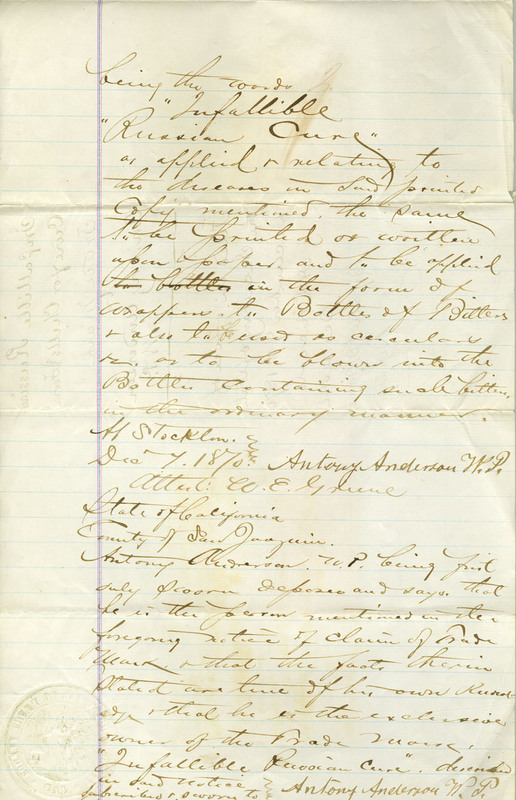 being the words
"Infallible
"Russian Cure"
as applied & relating to
the diseases in said printed
Copy mentioned, the same
to be printed or written
upon paper and to be applied
to bottles in the form of
wrappers to Bottles of Bitters
& also to be used as circulars
&c. or to be blown into the
Bottles containing such bitters,
in the ordinary manner.
At Stockton.
Dec 7. 1870. Antony Anderson W.P.
Attest: W. E. Greene
State of California
County of San Joaquin.
Antony Anderson. W P being first
duly sworn deposes and says that
he is the person mentioned in the
foregoing notice of claim of Trade
Mark & that the facts therein
stated are true of his own knowl
edge & that he is the exclusive
owner of the Trade Mark,
"Infallible Russian Cure", described
in said notice
Subscribed & sworn to Antony Anderson W. P.